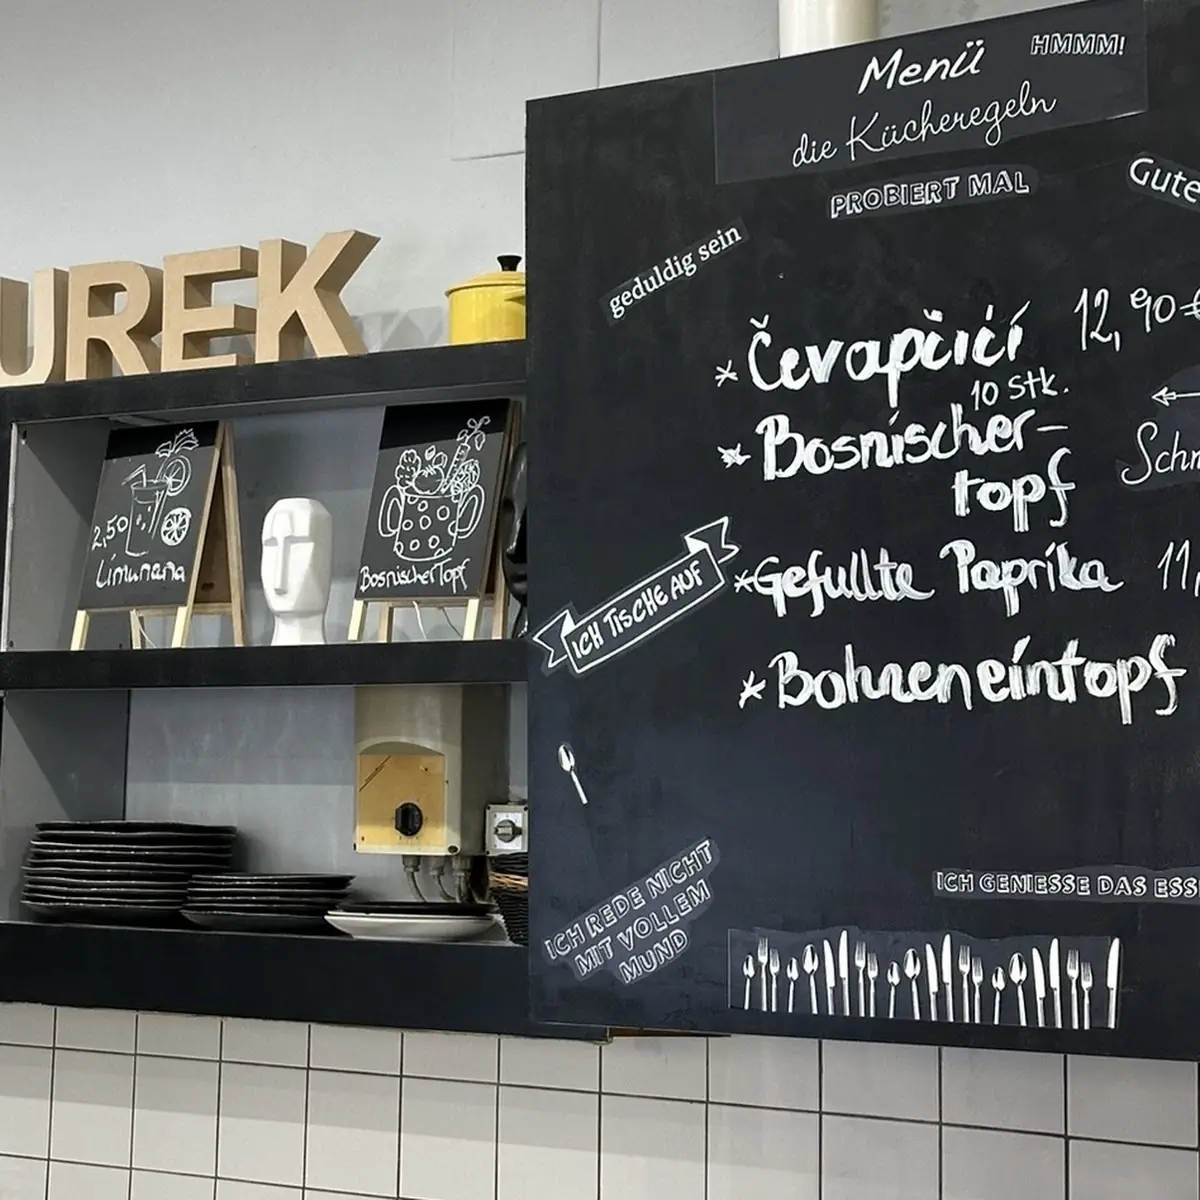 UREK
2,50
Limunana
Bosnischer Topf
Menü
HMMM!
die Kücheregeln
PROBIERT MAL
Gute
geduldig sein
* Čevapčići 12,90 €
10 Stk.
* Bosnischer-
topf
Schn
ICH TISCHE AUF
* Gefullte Paprika 11,
* Bohneneintopf
ICH REDE NICHT
MIT VOLLEM
MUND
ICH GENIESSE DAS ESS